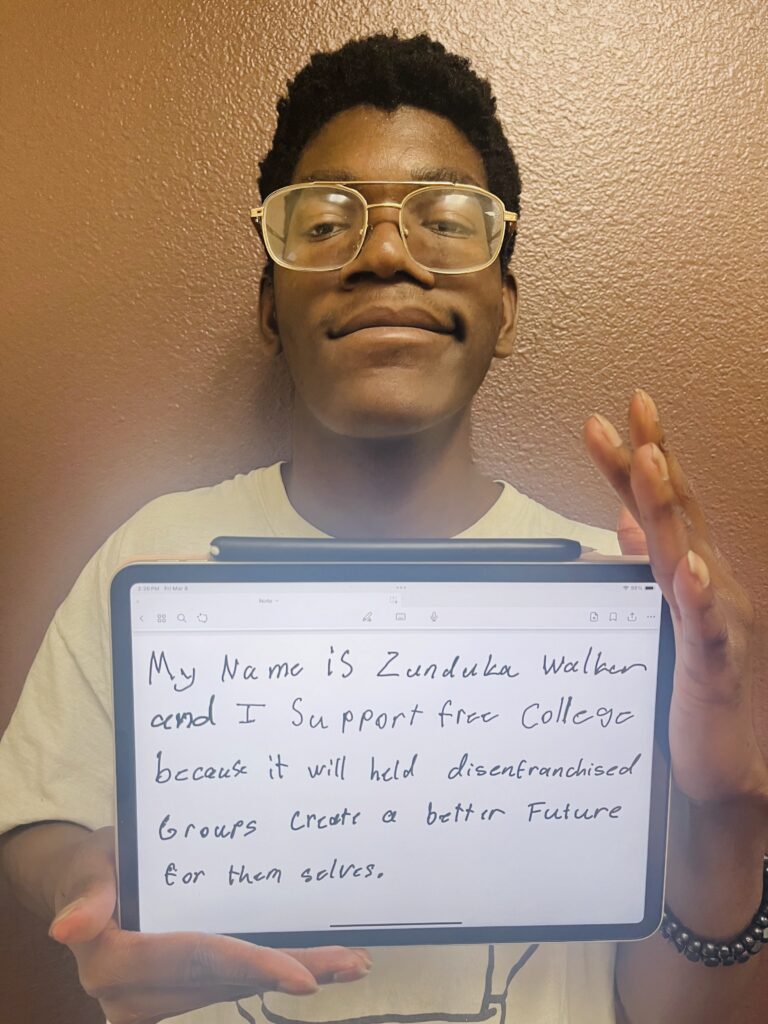 2:26 PM Fri Mar 8
88%
Note
My Name is Zunduka Walker
and I Support free College
because it will held disenfranchised
Groups create a better Future
for them selves.